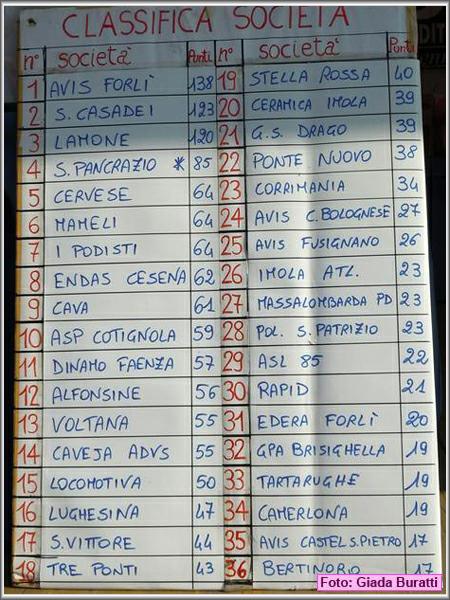 CLASSIFICA SOCIETÀ
n° società Punti n° società Punti
1 AVIS FORLÌ 138 19 STELLA ROSSA 40
2 S. CASADEI 123 20 CERAMICA IMOLA 39
3 LAMONE 120 21 G.S. DRAGO 39
4 S. PANCRAZIO * 85 22 PONTE NUOVO 38
5 CERVESE 64 23 CORRIMANIA 34
6 MAMELI 64 24 AVIS C. BOLOGNESE 27
7 I PODISTI 64 25 AVIS FUSIGNANO 26
8 ENDAS CESENA 62 26 IMOLA ATL. 23
9 CAVA 61 27 MASSALOMBARDA PD 23
10 ASP COTIGNOLA 59 28 POL. S. PATRIZIO 23
11 DINAMO FAENZA 57 29 ASL 85 22
12 ALFONSINE 56 30 RAPID 21
13 VOLTANA 55 31 EDERA FORLÌ 20
14 CAVEJA ADVS 55 32 GPA BRISIGHELLA 19
15 LOCOMOTIVA 50 33 TARTARUGHE 19
16 LUGHESINA 47 34 CAMERLONA 19
17 S. VITTORE 44 35 AVIS CASTEL S. PIETRO 17
18 TRE PONTI 43 36 BERTINORO 17
Foto: Giada Buratti